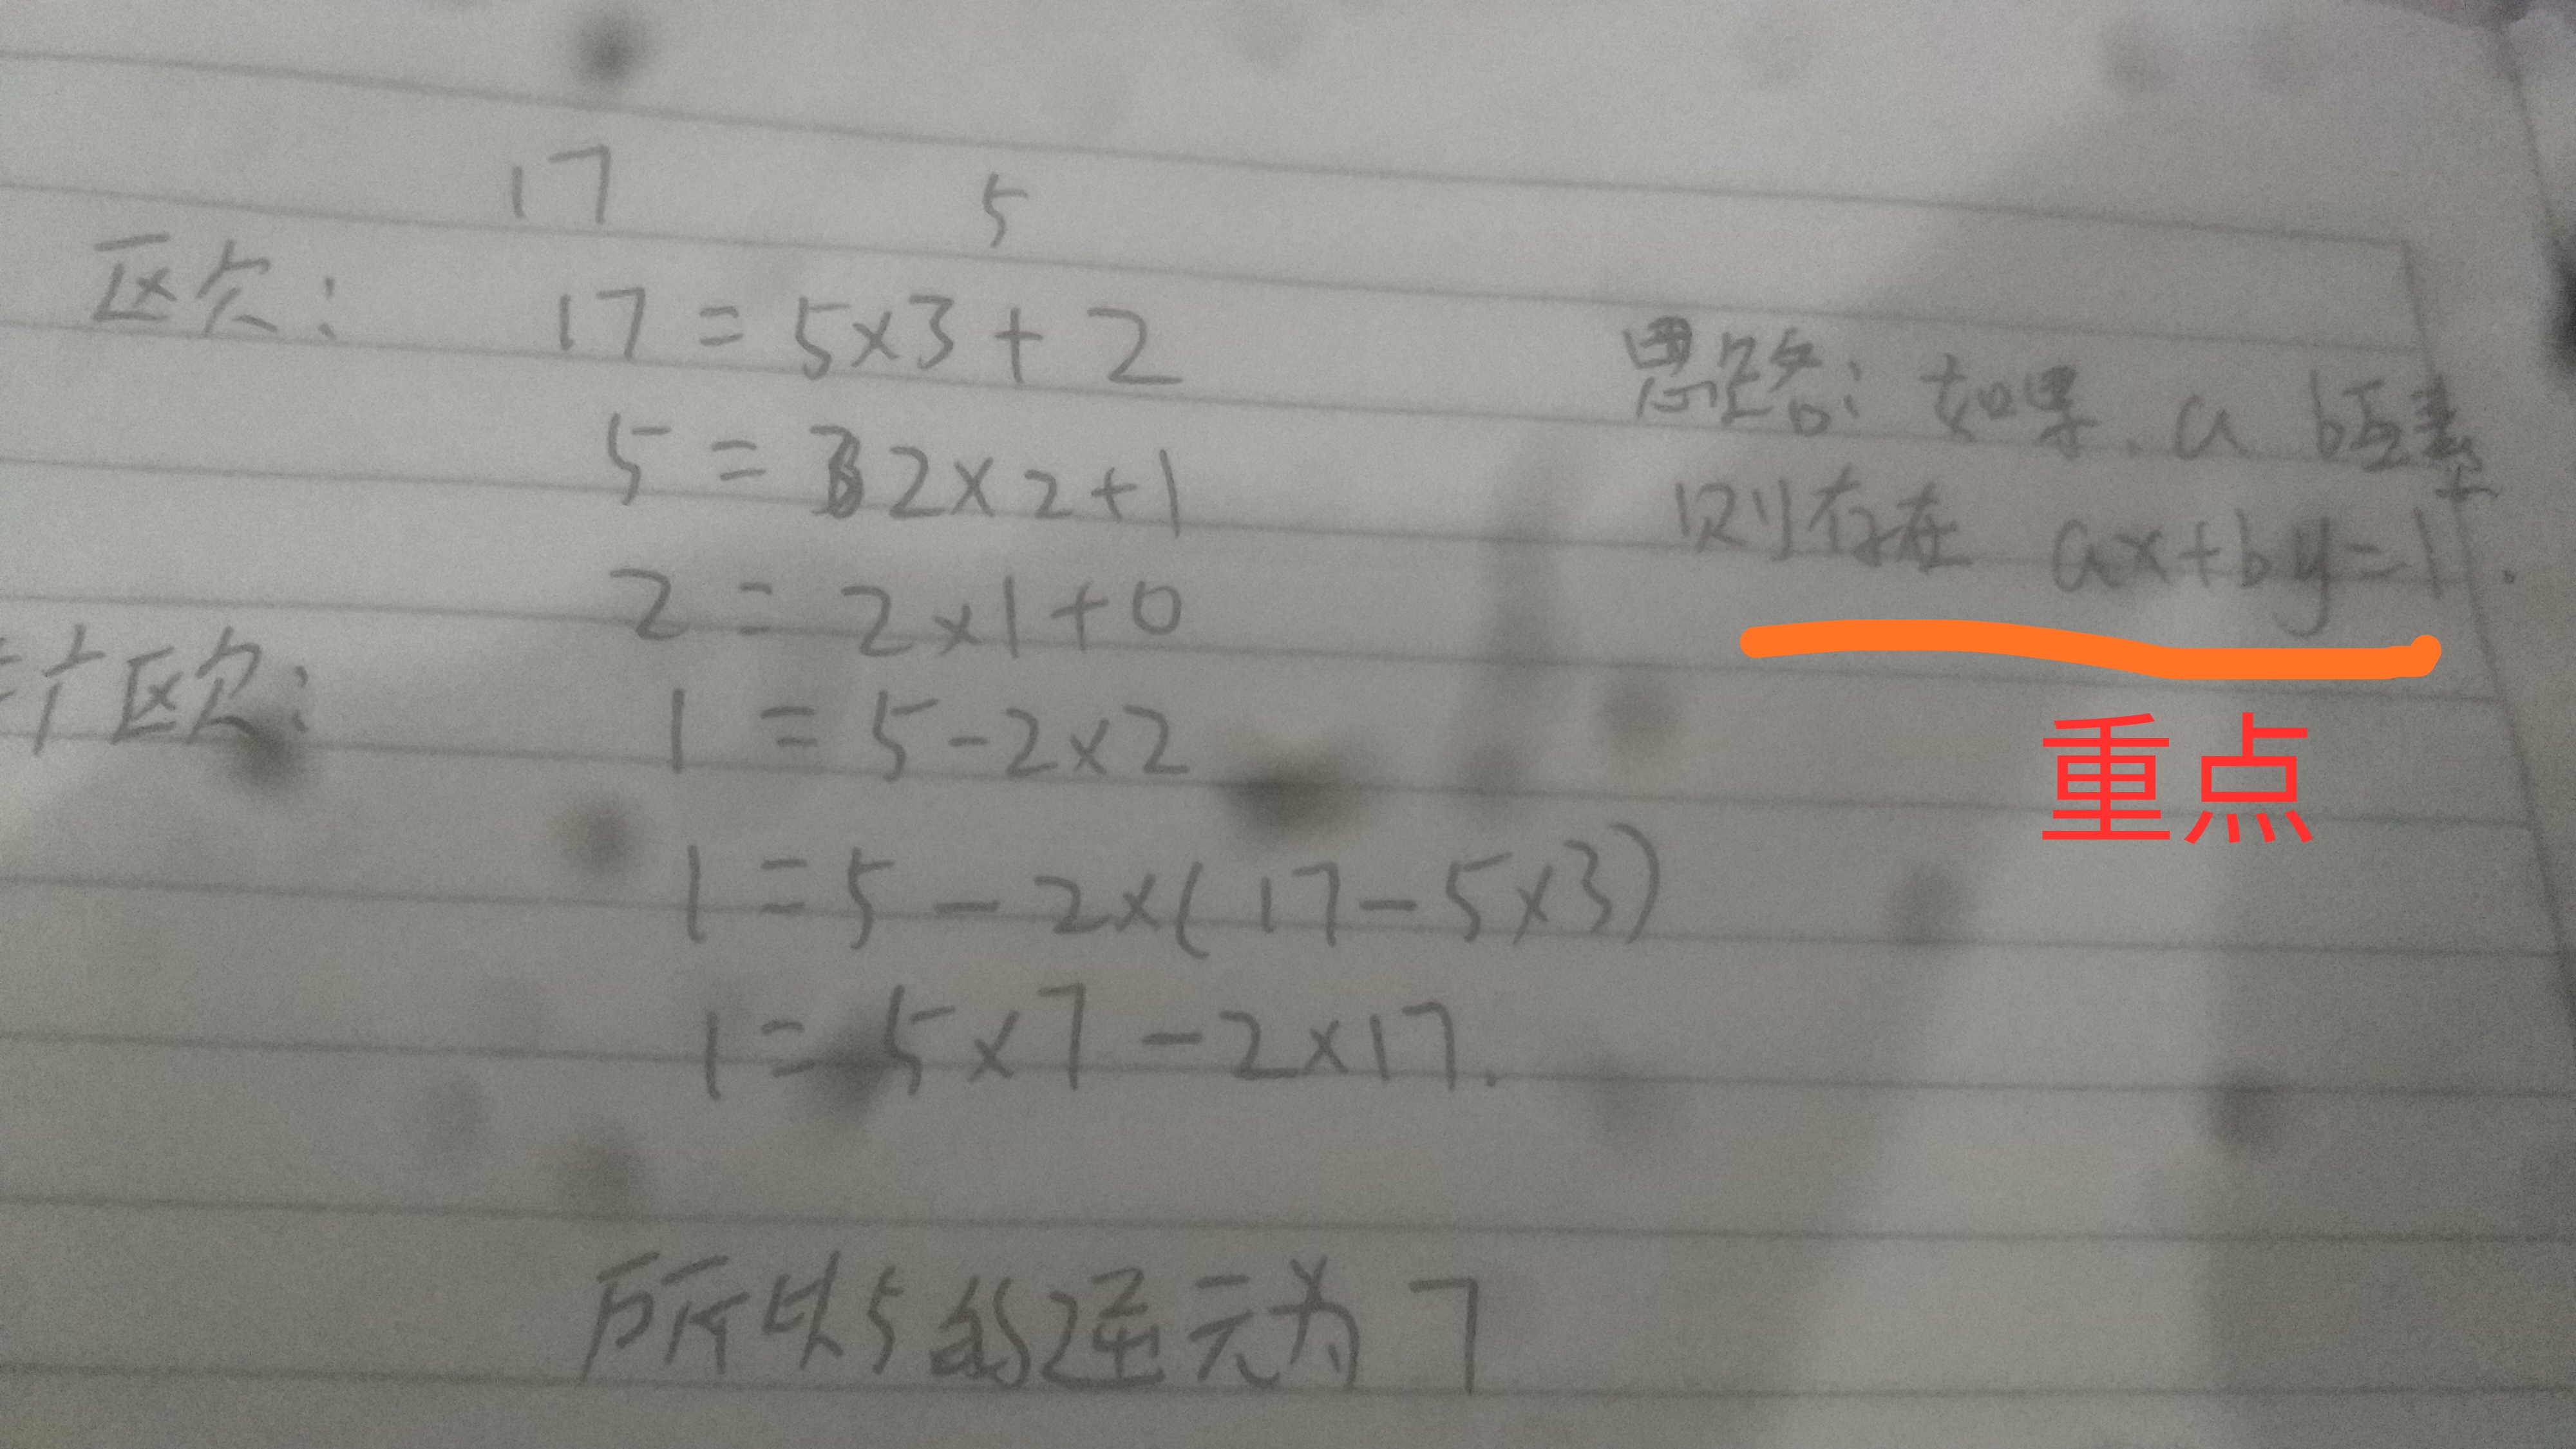 17 5
区欠: 17 = 5×3 + 2
思路: 如果. a b互素
5 = 2×2+1
则存在 ax+by=1.
2 = 2×1+0
扩区欠:
1 = 5-2×2
重点
1 = 5 - 2×(17-5×3)
1 = 5×7 - 2×17.
所以5的逆元为7